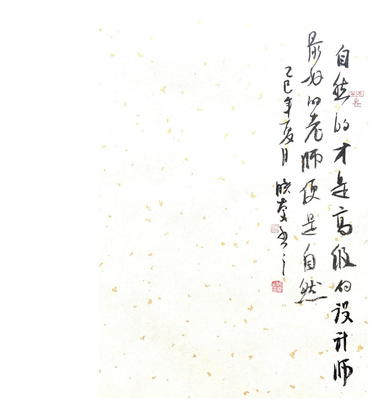 自然的才是高级的设计师
最好的老师便是自然
乙巳年夏月